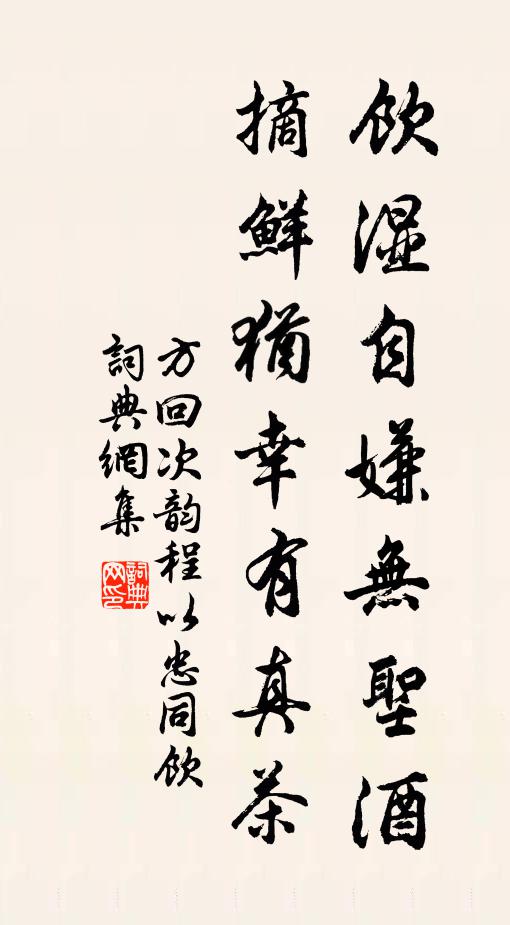 飲濕自嫌無聖酒
摘鮮猶幸有真茶
方回次韵程以忠同飲
詞典網集
詞典网印